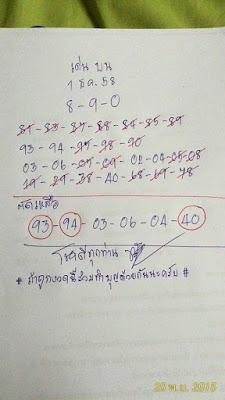 เด่น บน
1 ธ.ค. 58
8-9-0
81-83-87-88-84-85-89
93-94-97-98-90
03-06-07-09-01-04-05-08
19-29-38-40-68-69-78
คัดเหลือ
93-94-03-06-04-40
โชคดีทุกท่าน
# ถ้าถูกงวดนี้ร่วมทำบุญด้วยกันนะครับ #
28 พ.ย. 2015